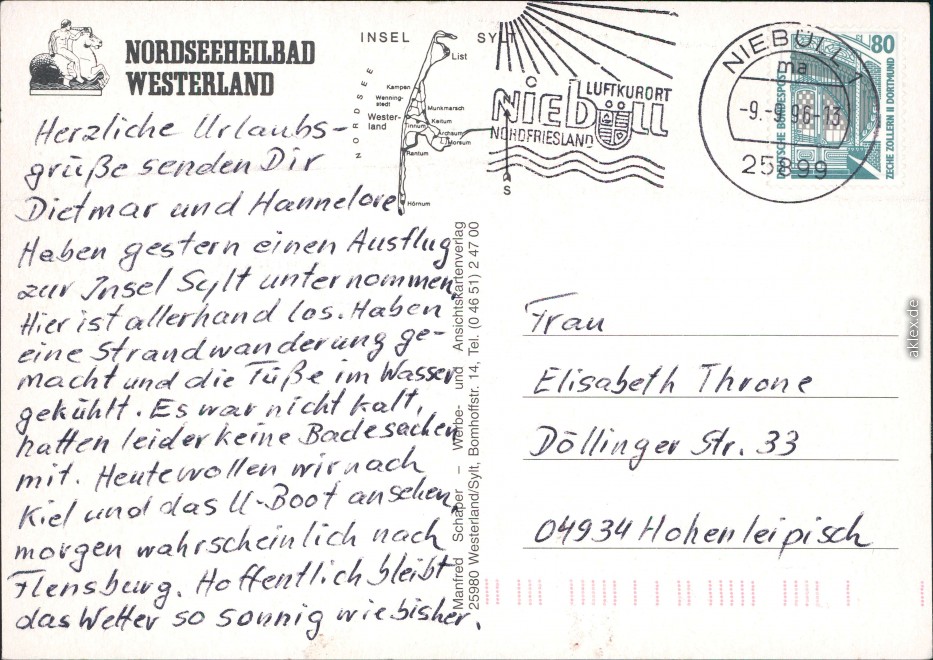 NORDSEEHEILBAD
WESTERLAND
INSEL SYLT
NORDSEE
List
Kampen
Wenning-
stedt
Munkmarsch
Wester-
land
Keitum
Tinnum
Archsum
Morsum
Rantum
Hörnum
LUFTKURORT
NIEBÜLL
NORDFRIESLAND
NIEBÜLL 1
ma
-9.-9.96-13
25899
80
DEUTSCHE BUNDESPOST
ZECHE ZOLLERN II DORTMUND
Herzliche Urlaubs-
grüße senden Dir
Dietmar und Hannelore
Haben gestern einen Ausflug
zur Insel Sylt unternommen.
Hier ist allerhand los. Haben
eine Strandwanderung ge-
macht und die Füße im Wasser
gekühlt. Es war nicht kalt,
hatten leider keine Badesachen
mit. Heute wollen wir nach
Kiel und das U-Boot ansehen,
morgen wahrscheinlich nach
Flensburg. Hoffentlich bleibt
das Wetter so sonnig wie bisher.
Manfred Schaper – Werbe- und Ansichtskartenverlag
25980 Westerland/Sylt, Bomhoffstr. 14, Tel. (0 46 51) 2 47 00
Frau
Elisabeth Throne
Döllinger Str. 33
04934 Hohenleipisch
aklex.de